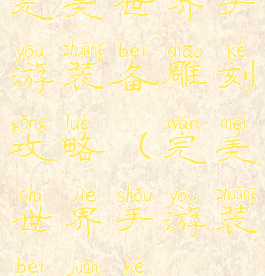 完美世界手
yóu zhuāng bèi diāo kè
游装备雕刻
gōng lüè wán měi
攻略（完美
shì jiè shǒu yóu zhuāng
世界手游装
bèi juān kè